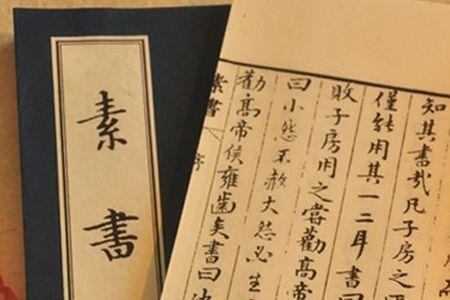 素書
知其書哉凡子房之
僅能用其一二耳書
敗子房用之嘗勸高帝
曰小怨不赦大怨必生
勸高帝侯雍齒矣書曰
素書 序